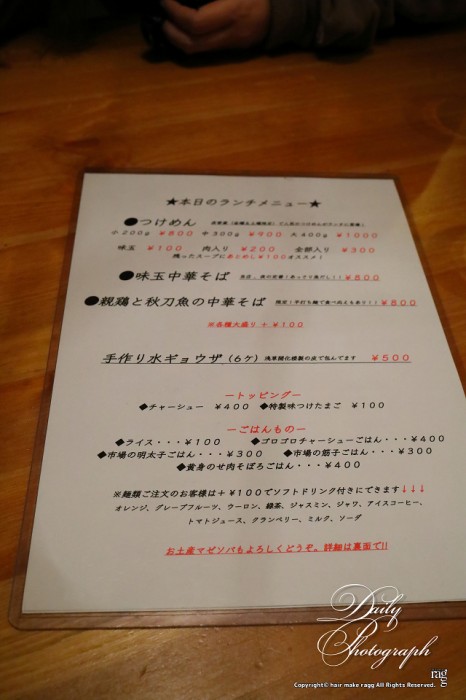 ★本日のランチメニュー★
●つけめん
小200g ￥800 中300g ￥900 大400g ￥1000
味玉 ￥100 肉入り ￥200 全部入り ￥300
残ったスープにあとめし￥100オススメ！
●味玉中華そば ￥800
●親鶏と秋刀魚の中華そば ￥800
※各種大盛り＋￥100
手作り水ギョウザ（6ケ） 浅草開化楼製の皮で包んでます ￥500
ートッピングー
◆チャーシュー ￥400 ◆特製味つけたまご ￥100
ーごはんものー
◆ライス・・・￥100 ◆ゴロゴロチャーシューごはん・・・￥400
◆市場の明太子ごはん・・・￥300 ◆市場の筋子ごはん・・・￥300
◆黄身のせ肉そぼろごはん・・・￥400
※麺類ご注文のお客様は＋￥100でソフトドリンク付きにできます↓↓↓
オレンジ、グレープフルーツ、ウーロン、緑茶、ジャスミン、ジャワ、アイスコーヒー、
トマトジュース、クランベリー、ミルク、ソーダ
お土産マゼソバもよろしくどうぞ。詳細は裏面で!!
Daily
Photograph
ragg
Copyright© hair make ragg All Rights Reserved.